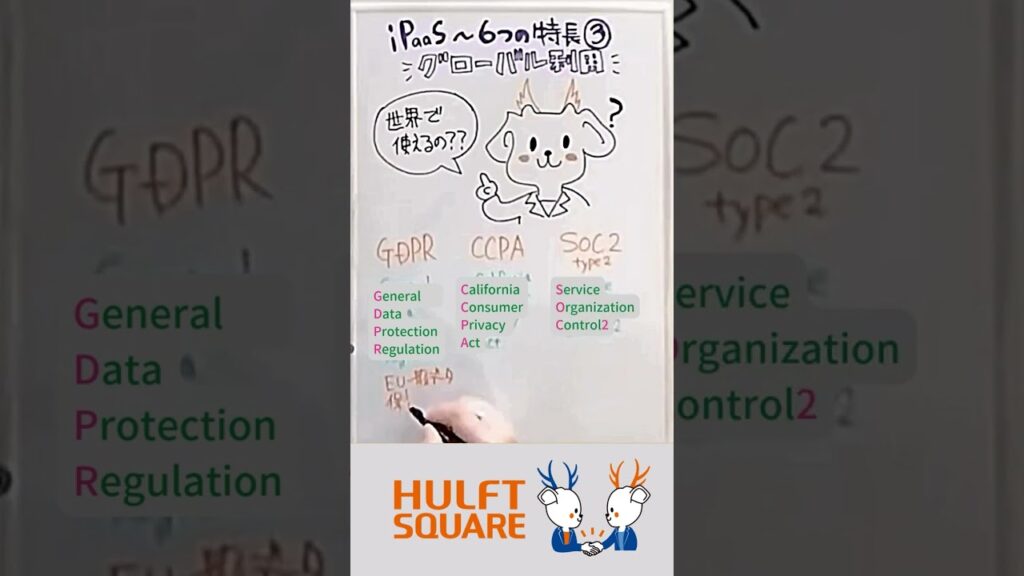 iPaaS～6つの特長③
グローバル利用
世界で
使えるの??
?
GDPR
CCPA
SOC2
type2
General
Data
Protection
Regulation
California
Consumer
Privacy
Act
Service
Organization
Control2
EU一般データ
保
HULFT
SQUARE
GDPR
General
Data
Protection
Regulation
SOC2
type2
ervice
rganization
ontrol2